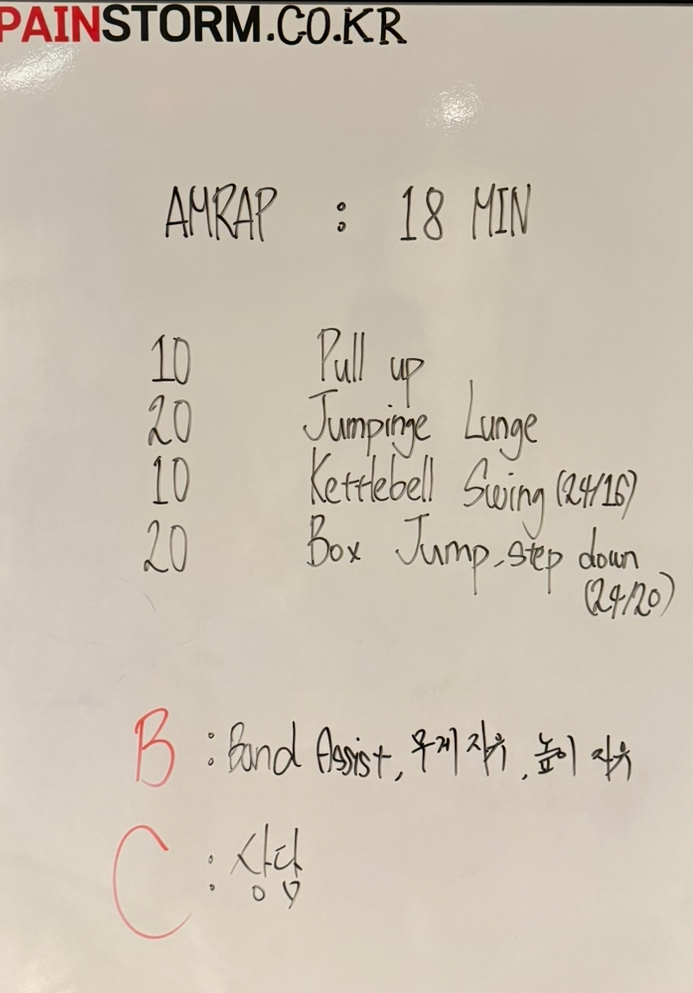 PAINSTORM.CO.KR
AMRAP : 18 MIN
10 Pull up
20 Jumpinge Lunge
10 Kettlebell Swing (24/16)
20 Box Jump, step down
(24/20)
B : Band Assist, 무게 자유, 높이 자유
C : 상담